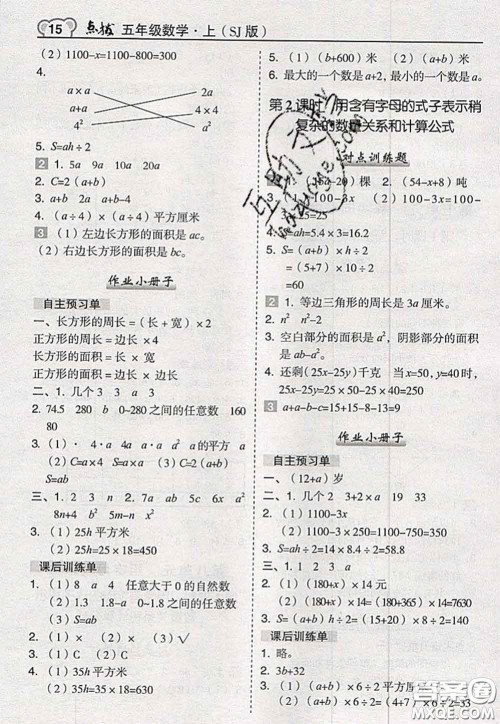 15 点拨 五年级数学·上(SJ版)
(2) 1100-x=1100-200=900
4.
a×a 2a
2a a+a
a+a 4×4
4² a²
5. S=ah÷2
2 1. 5a 9a 20a 16a
2. C=2(a+b)
3. 40a a a
4. (a÷4)×(a÷4)平方厘米
3 (1)左边长方形的面积是ac。
(2)右边长方形的面积是bc。
作业小册子
自主预习单
一、长方形的周长=(长+宽)×2
正方形的周长=边长×4
长方形的面积=长×宽
正方形的面积=边长×边长
二、1. 几个 3 3 a 3a
2. 74.5 280 b 0~280之间的任意数 160
80
3. (1)· 4·a 4a a·a a² a的平方 a²
(2) C=4a S=a²
三、1. 2 3 n 2n
2. 5a xy 4x a² mn 5b
8n+n² 9c n²
3. (1) 25h平方米
(2) 25h=25×18=450
课后训练单
1. (1) 8 a 4 任意大于0的自然数
(2) 1.3 1.8-a 0~1.8之间的任意数
(3) S=ab
2. (1)× (2)× (3)√
3. (1) C (2) C
4. (1) 35h平方米
(2) 35h=35×18=630
5. (1) (b+600)米 (2) b
6. 最大的一个数是a+2,最小的一个数是
第2课时 用含有字母的式子表示稍
复杂的数量关系和计算公式
对点训练题
棵 2. (54-x+8)吨
3. (1) 1100-3x (2) 1100-3x=1100-
=25
S=ah=5.4×3=16.2
5. S=(a+b)×h÷2
=(5+7)×10÷2
=60
2 1. 等边三角形的周长是3a厘米。
2. n n²
3. 空白部分的面积是a²,阴影部分的面积是
ab-a²。
4. 还剩(25x-25y)千克 当x=50,y=40时,
25x-25y=25×50-25×40=250
3 a+a-b-c=15+15-8-13=9
作业小册子
自主预习单
一、(12+a)岁
二、1. 几个2 2×a 19 33
2. (1) 1100-3x
(2) 1100-3x=1100-3×250=350
3. S=ah÷2=14×8.4÷2=58.8
三、1. 3 a 3a
2. (1) (180+x)×14元
(2) (180+x)×14=(180+365)×14=7630
3. S=(a+b)h÷2=(15+20)×8÷2=140
课后训练单
1. 略。
2. 3b+32
3. (1) (a+b)×6÷2平方厘米